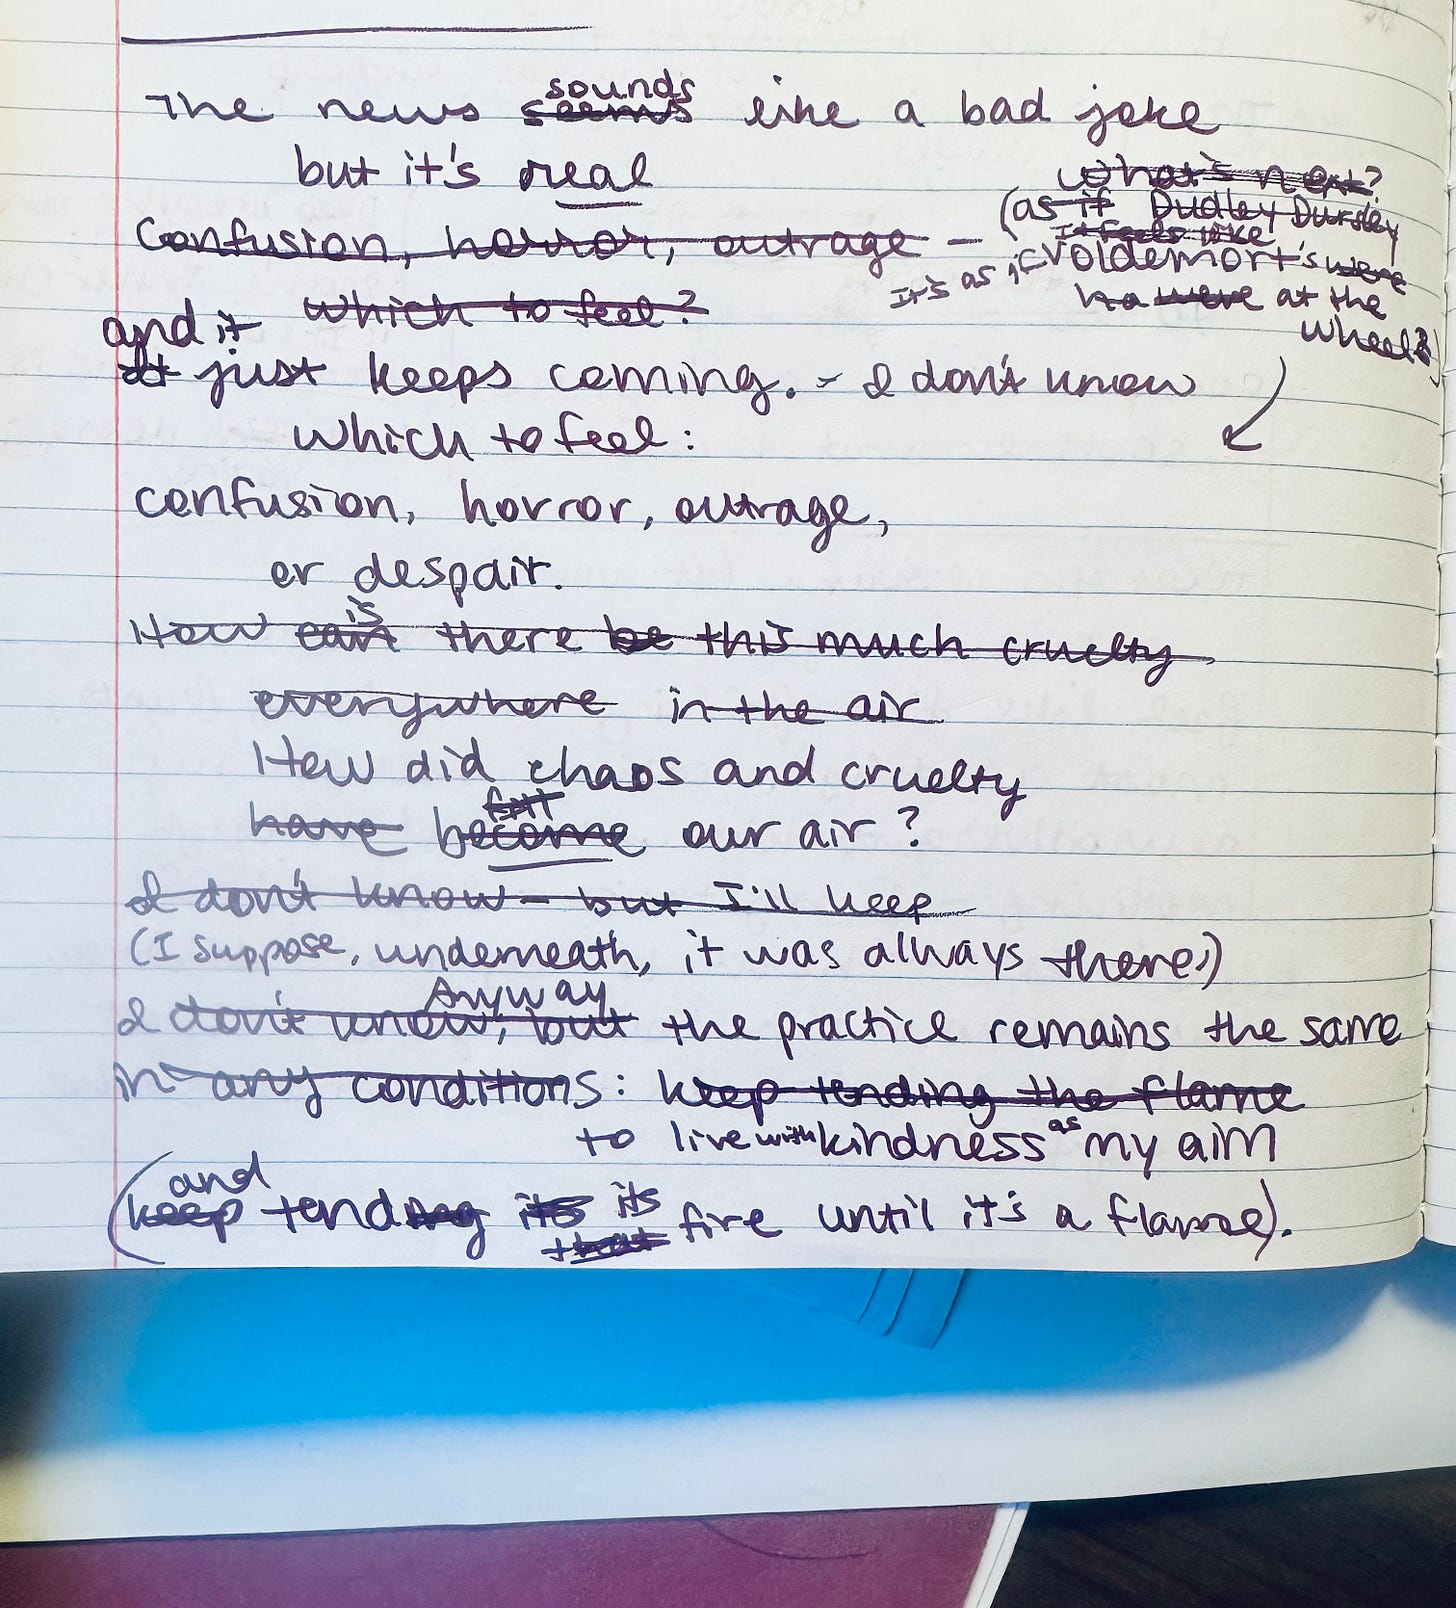 The news seems sounds like a bad joke
but it's real
What's next?
(as if Dudley Dursley
It feels like
Confusion, horror, outrage –
It's as if Voldemort's were
were at the
wheel
which to feel?
and it
It just keeps coming. – I don't know
which to feel:
confusion, horror, outrage,
or despair.
How can is there be this much cruelty
everywhere in the air
How did chaos and cruelty
have become our air?
I don't know – but I'll keep
(I suppose, underneath, it was always there.)
Anyway
I don't know, but the practice remains the same
in any conditions: keep tending the flame
to live with kindness as my aim
and
(keep tending its its fire until it's a flame).
that